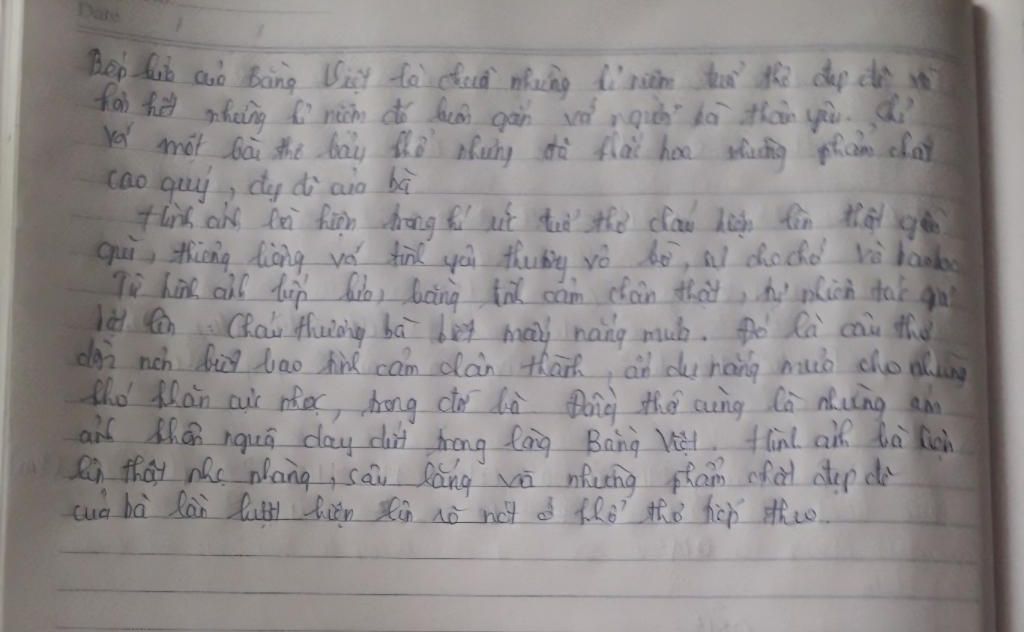 Date
Bếp lửa của Bằng Việt là chứa những kỉ niệm tuổi thơ đẹp đẽ và
hầu hết những kỉ niệm đó luôn gắn với người bà thân yêu. Chỉ
với một bài thơ bảy khổ nhưng đã khắc hoạ những phẩm chất
cao quý, đẹp đẽ của bà
Hình ảnh bà hiện trong kí ức tuổi thơ cháu hiện lên thật gần
gũi, thiêng liêng với tình yêu thương vô bờ, sự che chở và bao
Từ hình ảnh bếp lửa, bằng tình cảm chân thật, tự nhiên tác giả
lên Cháu thương bà biết mấy nắng mưa. Đó là câu thơ
nén biết bao tình cảm chân thành, ẩn dụ nắng mưa cho những
khó khăn cực nhọc, trong đời bà Đồng thời cũng là những ám
ảnh khôn nguôi day dứt trong lòng Bằng Việt. Hình ảnh bà hiện
lên thật nhẹ nhàng, sâu lắng và những phẩm chất đẹp đẽ
của bà lần lượt hiện lên rõ nét ở khổ thơ tiếp theo.